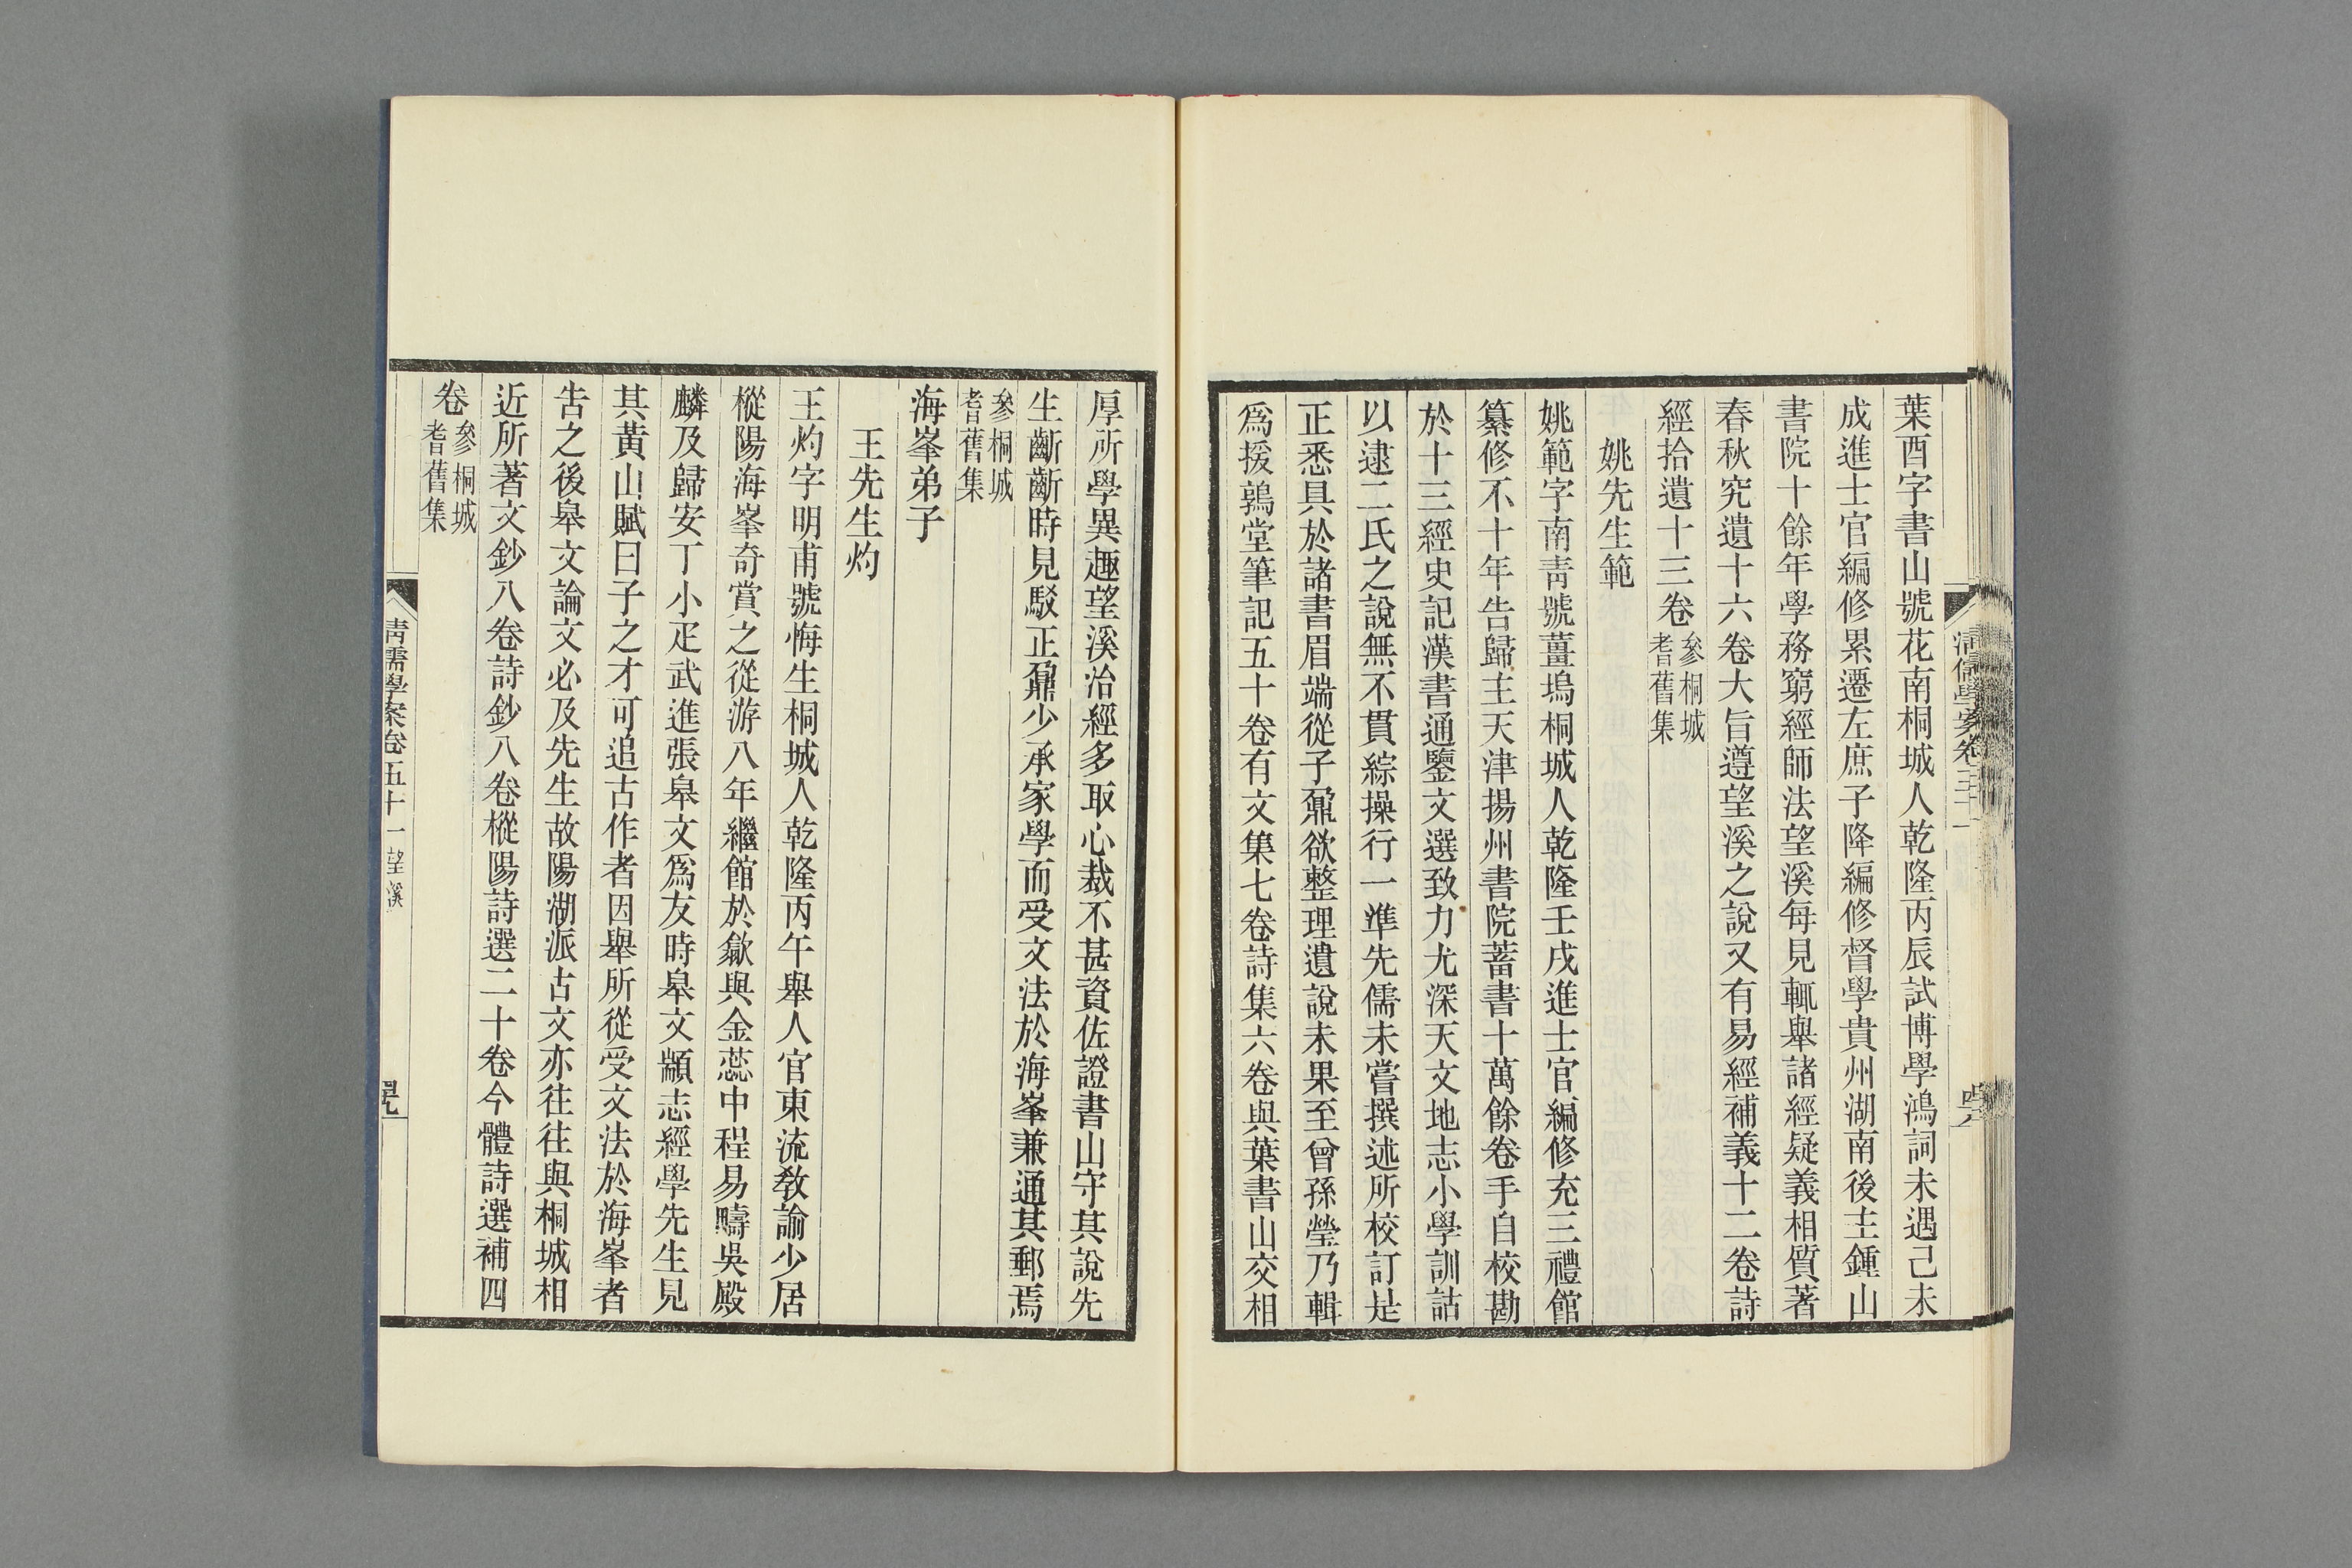 葉酉字書山號花南桐城人乾隆丙辰試博學鴻詞未遇己未
成進士官編修累遷左庶子降編修督學貴州湖南後主鍾山
書院十餘年學務窮經師法望溪每見輒舉諸經疑義相質著
春秋究遺十六卷大旨遵望溪之說又有易經補義十二卷詩
經拾遺十三卷參桐城
耆舊集
姚先生範
姚範字南靑號薑塢桐城人乾隆壬戌進士官編修充三禮館
纂修不十年告歸主天津揚州書院蓄書十萬餘卷手自校勘
於十三經史記漢書通鑒文選致力尤深天文地志小學訓詁
以逮二氏之說無不貫綜操行一準先儒未嘗撰述所校訂是
正悉具於諸書眉端從子鼐欲整理遺說未果至曾孫瑩乃輯
爲援鶉堂筆記五十卷有文集七卷詩集六卷與葉書山交相
厚所學異趣望溪治經多取心裁不甚資佐證書山守其說先
生齗齗時見駁正鼐少承家學而受文法於海峯兼通其郵焉
參桐城
耆舊集
海峯弟子
王先生灼
王灼字明甫號悔生桐城人乾隆丙午舉人官東流敎諭少居
樅陽海峯奇賞之從游八年繼館於歙與金蕊中程易疇吳殿
麟及歸安丁小疋武進張皋文爲友時皋文顓志經學先生見
其黃山賦曰子之才可追古作者因舉所從受文法於海峯者
吿之後皋文論文必及先生故陽湖派古文亦往往與桐城相
近所著文鈔八卷詩鈔八卷樅陽詩選二十卷今體詩選補四
卷參桐城
耆舊集
淸儒學案卷五十一 望溪